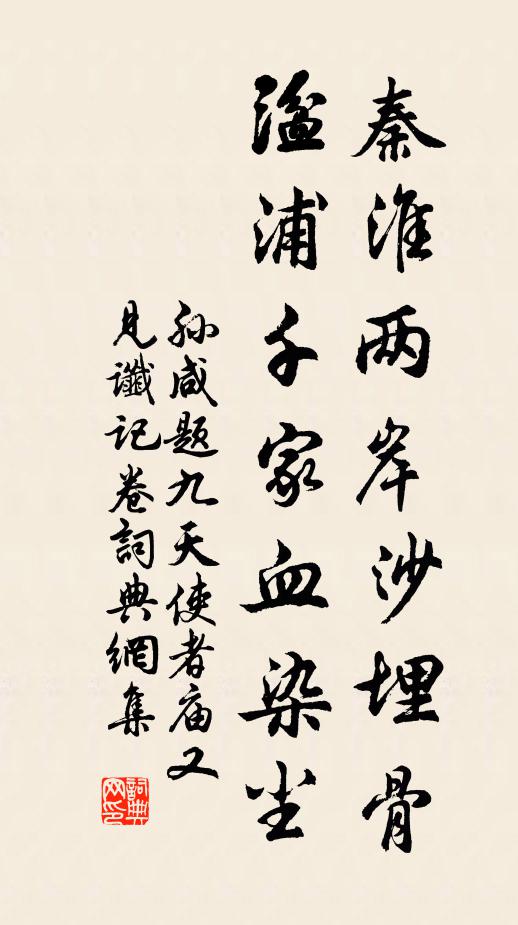 秦淮两岸沙埋骨
溢浦千家血染尘
孙咸题九天使者庙又
见谶记卷詞典網集
詞典网印